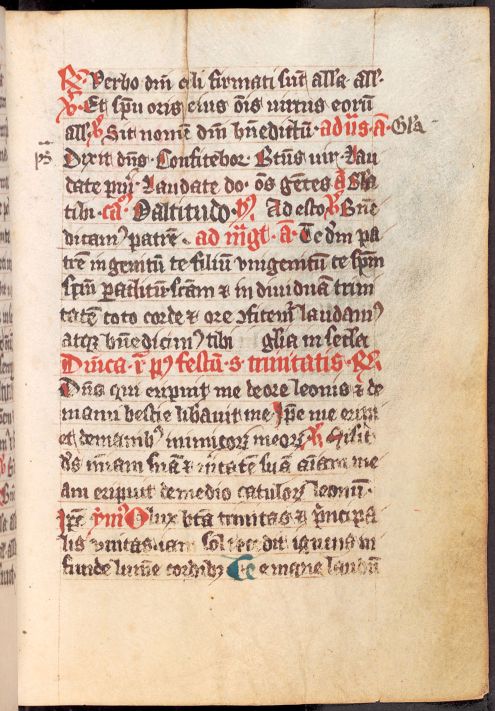 R. Verbo dni celi firmati sut alla all.
V. Et spu oris eius ois virtus eoru
all. V. Sit nome dni bndictu. ad vs a. Gla
ps Dixit dns. Confitebor. Btus vir. Lau
date pur. Laudate do. os getes a Gla
tibi. ca. O altitudo. y. Adesto V Bne
dicam9 patre. ad mgt. a. Te dm pa
tre ingenitu te filiu vnigenitu te spm
scm paclitu scam et indiuidua trini
tate toto corde et ore 9fitem laudam9
atqz bndicim9 tibi glia in secla
Dnica i p9 festu s trinitatis. R.
Dns qui eripuit me de ore leonis et de
manu bestie libauit me Ipe me eripi
et de manib9 inimicor meor V Misit
ds miam sua et itate sua aiam me
am eripuit de medio catulor leonu.
Ipe ym9 O lux bta trinitas et pncipa
lis vnitas iam sol recedit igneus in
funde lume cordib Te mane laudu